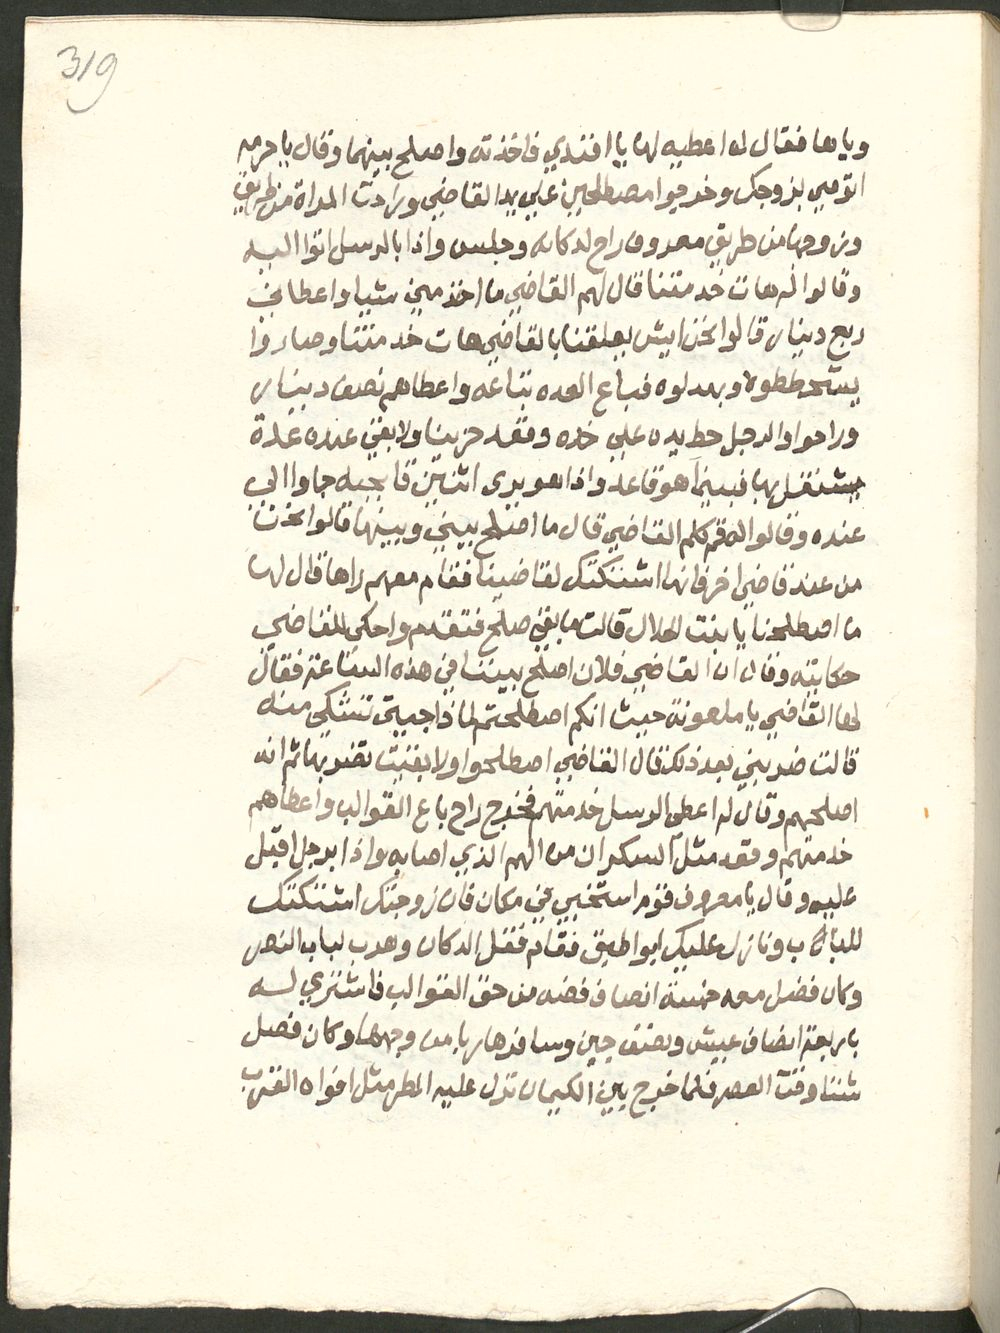 319
وياها فقال له اعطيه لها يا افندي فاخذته واصلح بينهما وقال يا حرمه
اتومي بزوجك وخرجوا مصطلحين علي يد القاضي وراحت المراة من طريق
وزوجها من طريق معروف راح لدكانه وجلس واذا بالرسل اتوا اليه
وقالوا له هات خدمتنا قال لهم القاضي ما اخذ مني شيا واعطاني
ربع دينار قالوا نحن ايش يعلقنا بالقاضي هات خدمتنا وصاروا
يشحططوه ويبهدلوه فباع العده بتاعه واعطاهم نصف دينار
وراحوا والرجل حط يده علي خده وقعد حزينا ولا بقي عنده عدة
يشتغل بها فبينما هو قاعد واذا هو يرى اثنين قابجيه جاوا الي
عنده وقالوا له قم كلم القاضي قال ما اصلح بيني وبينها قالوا نحن
من عند قاضي اخر فانها اشتكتك لقاضينا فقام معهم راها قال لها
ما اصطلحنا يا بنت الحلال قالت ما بقي صلح فتقدم واحكي للقاضي
حكايته وقال ان القاضي فلان اصلح بيننا في هذه الساعة فقال
لها القاضي يا ملعونة حيث انكم اصطلحتم لماذا جيتي تشتكي منه
قالت ضربني بعد ذلك قال القاضي اصطلحوا ولا بقيت تضربها ثم انه
اصلحهم وقال له اعطي الرسل خدمتهم فخرج راح باع القوالب واعطاهم
خدمتهم وقعد مثل السكران من الهم الذي اصابه واذا برجل اقبل
عليه وقال يا معروف قوم استخبي في مكان فان زوجتك اشتكتك
للباب ونازل عليك ابو اطبق فقام قفل الدكان وهرب لباب النصر
وكان فضل معه خمسة انصاف فضه من حق القوالب فاشتري له
باربعة انصاف عيش وبنصف جبن وسافر هاربا من وجهها وكان فصل
شتا وقت العصر فلما خرج بين الكيمان نزل عليه المطر مثل افواه القرب